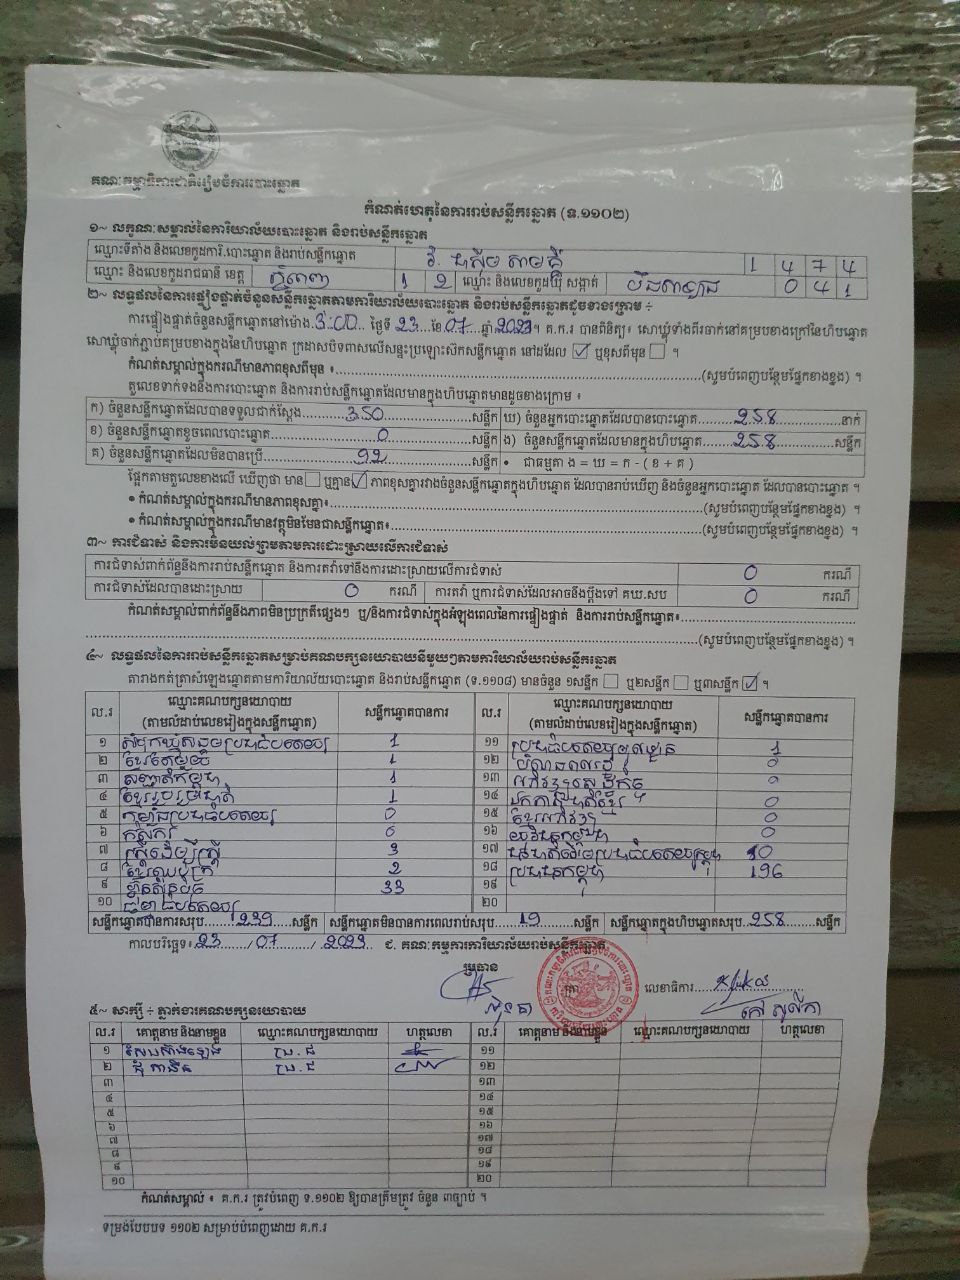 គណៈកម្មាធិការជាតិរៀបចំការបោះឆ្នោត
កំណត់ហេតុនៃការរាប់សន្លឹកឆ្នោត (ទ.១១០២)
១~ លក្ខណៈសម្គាល់នៃការិយាល័យបោះឆ្នោត និងរាប់សន្លឹកឆ្នោត
ឈ្មោះទីតាំង និងលេខកូដការិ.បោះឆ្នោត និងរាប់សន្លឹកឆ្នោត វិ. 1 4 7 4
ឈ្មោះ និងលេខកូដរាជធានី ខេត្ត ភ្នំពេញ 1 2 ឈ្មោះ និងលេខកូដឃុំ សង្កាត់ 0 4 1
២~ លទ្ធផលនៃការផ្ទៀងផ្ទាត់ចំនួនសន្លឹកឆ្នោតតាមការិយាល័យបោះឆ្នោត និងរាប់សន្លឹកឆ្នោតដូចខាងក្រោម ÷
ការផ្ទៀងផ្ទាត់ចំនួនសន្លឹកឆ្នោតនៅម៉ោង 3:00 ថ្ងៃទី 23 ខែ 07 ឆ្នាំ 2023 ។ គ.ក.រ បានពិនិត្យ៖ សោឃ្លុំទាំងពីរចាក់នៅគម្របខាងក្រៅនៃហិបឆ្នោត
សោឃ្លុំចាក់ភ្ជាប់គម្របខាងក្នុងនៃហិបឆ្នោត ក្រដាសបិទពាសលើសន្ទះប្រឡោះស៊កសន្លឹកឆ្នោត នៅដដែល ☑ ឬខុសពីមុន ☐ ។
កំណត់សម្គាល់ក្នុងករណីមានភាពខុសពីមុន ៖ (សូមបំពេញបន្ថែមផ្នែកខាងខ្នង) ។
តួលេខទាក់ទងនឹងការបោះឆ្នោត និងការរាប់សន្លឹកឆ្នោតដែលមានក្នុងហិបឆ្នោតមានដូចខាងក្រោម ៖
ក) ចំនួនសន្លឹកឆ្នោតដែលបានទទួលជាក់ស្តែង 350 សន្លឹក ឃ) ចំនួនអ្នកបោះឆ្នោតដែលបានបោះឆ្នោត 258 នាក់
ខ) ចំនួនសន្លឹកឆ្នោតខូចពេលបោះឆ្នោត 0 សន្លឹក ង) ចំនួនសន្លឹកឆ្នោតដែលមានក្នុងហិបឆ្នោត 258 សន្លឹក
គ) ចំនួនសន្លឹកឆ្នោតដែលមិនបានប្រើ 92 សន្លឹក • ជាធម្មតា ង = ឃ = ក - ( ខ + គ )
ផ្អែកតាមតួលេខខាងលើ ឃើញថា មាន ☐ ឬគ្មាន ☑ ភាពខុសគ្នារវាងចំនួនសន្លឹកឆ្នោតក្នុងហិបឆ្នោត ដែលបានរាប់ឃើញ និងចំនួនអ្នកបោះឆ្នោត ដែលបានបោះឆ្នោត ។
• កំណត់សម្គាល់ក្នុងករណីមានភាពខុសគ្នា៖ (សូមបំពេញបន្ថែមផ្នែកខាងខ្នង) ។
• កំណត់សម្គាល់ក្នុងករណីមានវត្ថុមិនមែនជាសន្លឹកឆ្នោត៖ (សូមបំពេញបន្ថែមផ្នែកខាងខ្នង) ។
៣~ ការជំទាស់ និងការមិនយល់ព្រមតាមការដោះស្រាយលើការជំទាស់
ការជំទាស់ពាក់ព័ន្ធនឹងការរាប់សន្លឹកឆ្នោត និងការតវ៉ាទៅនឹងការដោះស្រាយលើការជំទាស់ 0 ករណី
ការជំទាស់ដែលបានដោះស្រាយ 0 ករណី ការតវ៉ា ឬការជំទាស់ដែលអាចនឹងប្តឹងទៅ គឃ.សប 0 ករណី
កំណត់សម្គាល់ពាក់ព័ន្ធនឹងភាពមិនប្រក្រតីផ្សេងៗ ឬ/និងការជំទាស់ក្នុងអំឡុងពេលនៃការផ្ទៀងផ្ទាត់ និងការរាប់សន្លឹកឆ្នោត៖
(សូមបំពេញបន្ថែមផ្នែកខាងខ្នង) ។
៤~ លទ្ធផលនៃការរាប់សន្លឹកឆ្នោតសម្រាប់គណបក្សនយោបាយនីមួយៗតាមការិយាល័យរាប់សន្លឹកឆ្នោត
តារាងកត់ត្រាសំឡេងឆ្នោតតាមការិយាល័យបោះឆ្នោត និងរាប់សន្លឹកឆ្នោត (ទ.១១០៨) មានចំនួន ១សន្លឹក ☐ ឬ២សន្លឹក ☐ ឬ៣សន្លឹក ☑ ។
ល.រ ឈ្មោះគណបក្សនយោបាយ (តាមលំដាប់លេខរៀងក្នុងសន្លឹកឆ្នោត) សន្លឹកឆ្នោតបានការ ល.រ ឈ្មោះគណបក្សនយោបាយ (តាមលំដាប់លេខរៀងក្នុងសន្លឹកឆ្នោត) សន្លឹកឆ្នោតបានការ
១ សំបុកឃ្មុំសង្គមប្រជាធិបតេយ្យ 1 ១១ 1
២ ខ្មែរតែមួយ 1 ១២ 0
៣ សញ្ជាតិកម្ពុជា 1 ១៣ 0
៤ ខ្មែររួបរួមជាតិ 1 ១៤ 0
៥ កម្លាំងប្រជាធិបតេយ្យ 0 ១៥ ខ្មែរអភិវឌ្ឍ 0
៦ កសិករ 0 ១៦ យុវជនកម្ពុជា 0
៧ ស្ត្រីដើម្បីស្ត្រី 3 ១៧ 10
៨ 2 ១៨ ប្រជាជនកម្ពុជា 196
៩ ហ្វ៊ុនស៊ិនប៉ិច 33 ១៩
១០ ធម្មាធិបតេយ្យ ២០
សន្លឹកឆ្នោតបានការសរុប 239 សន្លឹក សន្លឹកឆ្នោតមិនបានការពេលរាប់សរុប 19 សន្លឹក សន្លឹកឆ្នោតក្នុងហិបឆ្នោតសរុប 258 សន្លឹក
កាលបរិច្ឆេទ៖ 23 / 07 / 2023 ជ. គណៈកម្មការការិយាល័យរាប់សន្លឹកឆ្នោត
ប្រធាន លេខាធិការ
៥~ សាក្សី ÷ ភ្នាក់ងារគណបក្សនយោបាយ
ល.រ គោត្តនាម និងនាមខ្លួន ឈ្មោះគណបក្សនយោបាយ ហត្ថលេខា ល.រ គោត្តនាម និងនាមខ្លួន ឈ្មោះគណបក្សនយោបាយ ហត្ថលេខា
១ ប្រ.ជ ១១
២ ប្រ.ជ ១២
៣ ១៣
៤ ១៤
៥ ១៥
៦ ១៦
៧ ១៧
៨ ១៨
៩ ១៩
១០ ២០
កំណត់សម្គាល់ ៖ គ.ក.រ ត្រូវបំពេញ ទ.១១០២ ឱ្យបានត្រឹមត្រូវ ចំនួន ៣ច្បាប់ ។
ទម្រង់បែបបទ ១១០២ សម្រាប់បំពេញដោយ គ.ក.រ